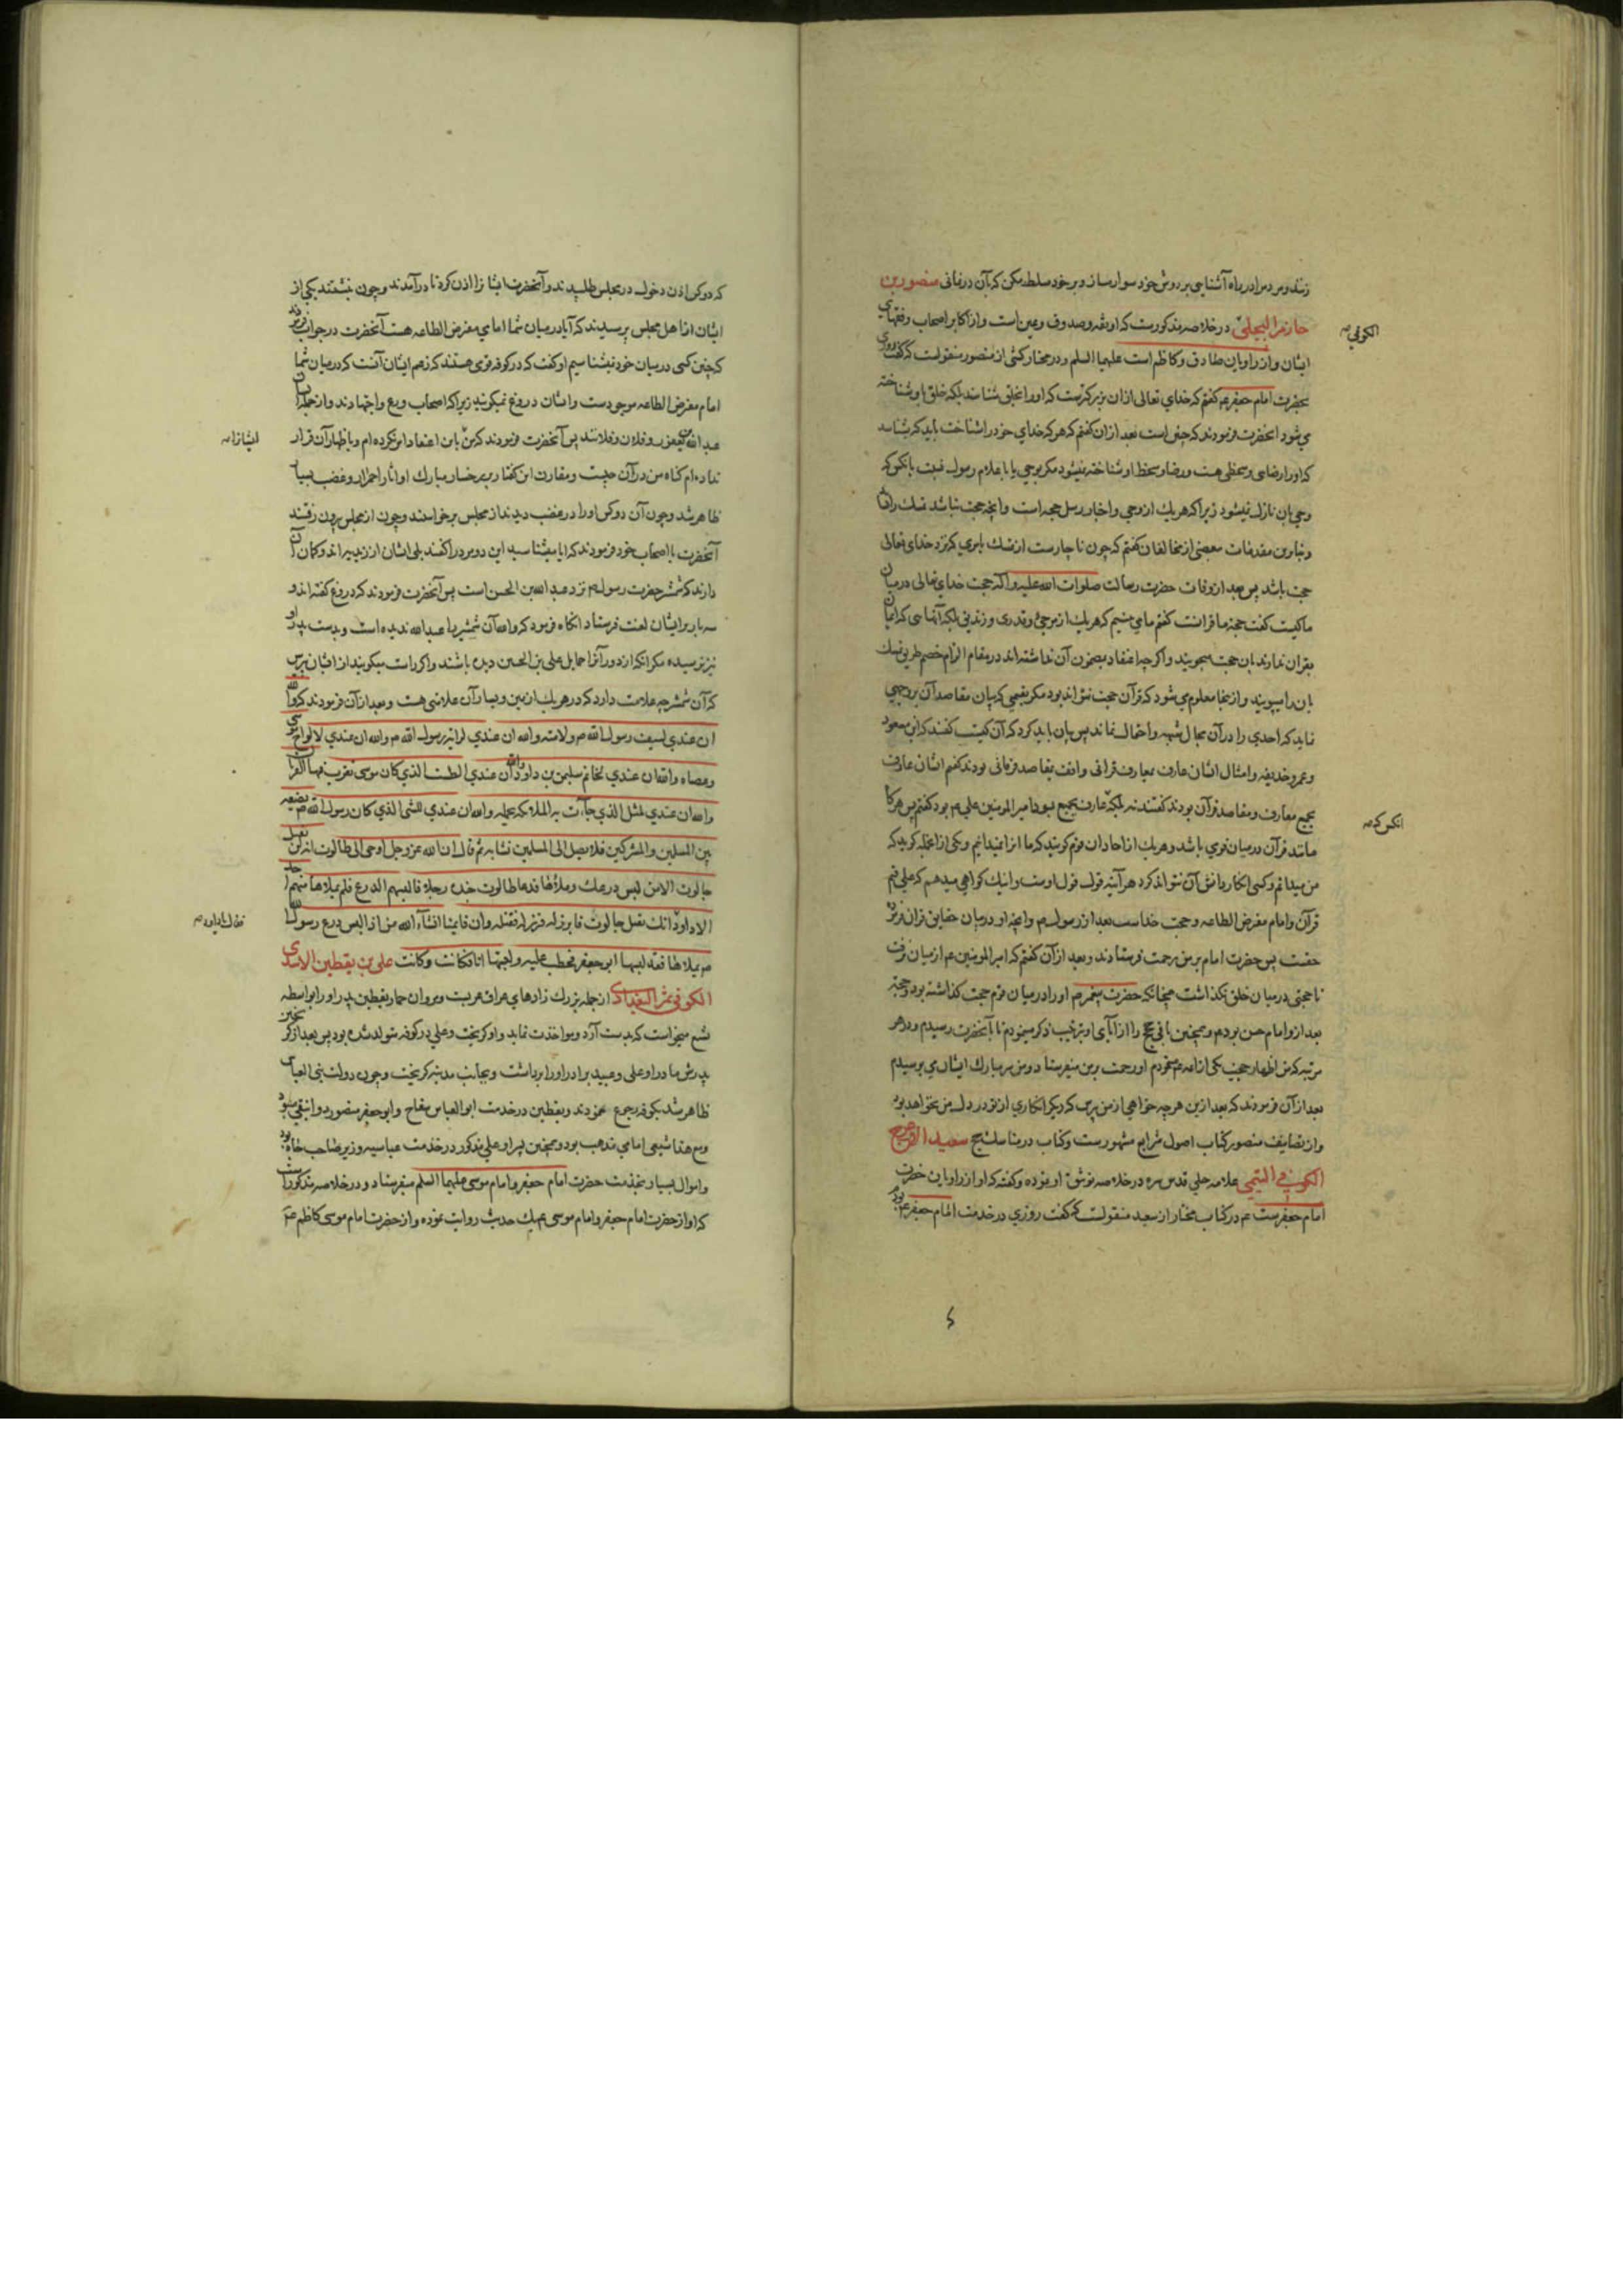 زند و مردم را در راه آشنایی بر دوش خود سوار مساز و بر خود مسلط مکن که بآن درمانی منصور بن
حازم البجلی در خلاصه مذکورست که او ثقه و صدوق و عین است و از اکابر اصحاب و فقهای
الکوفی صه
ایشان و از راویان صادق و کاظم است علیهما السلم و در مختار کشی از منصور منقولست که گفت روزی
بحضرت امام جعفر عم گفتم که خدای تعالی از آن بزرگترست که او را بخلق شناسند بلکه خلق باو شناخته
می شود آنحضرت فرمودند که چنین است بعد از آن گفتم که هر که خدای خود را شناخت باید که بشناسد
که او را رضایی و سخطی هست و رضا و سخط او شناخته نمیشود مگر بوحی یا باعلام رسول نسبت بآنکس که
وحی بآن نازل نمیشود زیرا که هر یک از وحی و اخبار رسل حجة است و آنچه حجت نباشد تمسک را نشاید
و بنابرین مقدمات ببعضی از مخالفان گفتم که چون ناچارست از تمسک بامری که نزد خدای تعالی
حجت باشد پس بعد از وفات حضرت رسالت صلوات الله علیه و آله حجت خدای تعالی در میان
ما کیست گفت حجة ما قرانست گفتم ما می بینیم که هر یک از مرجئ و قدری و زندیقی بلکه آنهایی که ایمان
بقران ندارند بآن حجت میجویند و اگر چه اعتقاد بمضمون آن نداشته اند در مقام الزام خصم طریق تمسک
بآن را میپویند و از اینجا معلوم می شود که قرآن حجت نتواند بود مگر بقیمی که بیان مقاصد آن بر وجهی
نماید که احدی را در آن مجال شبهه و احتمال نماند پس بیان باید کرد که آن کیست گفتند که ابن مسعود
و عمر و حذیفه و امثال ایشان عارف بمعارف قرانی و واقف بمقاصد فرقانی بودند گفتم ایشان عارف
بجمیع معارف و مقاصد قرآن بودند گفتند نه بلکه عارف بجمیع امیر المومنین علی عم بود گفتم پس هرگاه
آنکس که صه
مانند قرآن در میان قومی باشد و هر یک از آحاد آن قوم گویند که ما آنرا نمیدانیم و یکی از آنجمله گوید که
من میدانم و کسی انکار دانش آن نتواند کرد هر آینه قول قول اوست و اینک گواهی میدهم که علی قیم
قرآن و امام مفترض الطاعه و حجت خداست بعد از رسول صم و آنچه او در بیان حقایق قران فرموده
حقست پس حضرت امام بر من رحمت فرستادند و بعد از آن گفتم که امیر المومنین عم از میان نرفت
تا حجتی در میان خلق نگذاشت همچنانکه حضرت پیغمبر صم او را در میان قوم حجت گذاشته بود و حجة
بعد ازو امام حسن بود عم و همچنین باقی حجج را از آبای او بترتیب ذکر مینمودم تا بآنحضرت رسیدم و در هر
مرتبه که من اظهار حجیت یکی از ائمه عم میکردم او رحمت بر من میفرستاد و من سر مبارک ایشان می بوسیدم
بعد از آن فرمودند که بعد ازین هر چه خواهی از من بپرس که دیگر انکاری از تو در دل من نخواهد بود
و از تصانیف منصور کتاب اصول شرایع مشهورست و کتاب در مناسک حج سعید الاعرج
الکوفی التیمی علامه حلی قدس سره در خلاصه توثیق او نموده و گفته که او از راویان حضرت
امام جعفرست عم در کتاب مختار از سعید منقولست که گفت روزی در خدمت امام جعفر عم بودم
که دو کس اذن دخول در مجلس طلبیدند و آنحضرت ایشانرا اذن کرد تا درآمدند و چون نشستند یکی از
ایشان از اهل مجلس پرسیدند که آیا در میان شما امامی مفترض الطاعه هست آنحضرت در جواب فرمود
که چنین کسی در میان خود نمیشناسیم او گفت که در کوفه قومی هستند که زعم ایشان آنست که در میان شما
امام مفترض الطاعه موجودست و ایشان دروغ نمیگویند زیرا که اصحاب ورع و اجتهادند و از جمله ایشان
عبد الله یعفور و فلان و فلانند پس آنحضرت فرمودند که من باین اعتقاد امر نکرده ام و باظهار آن قرار
ایشانرا صه
نداده ام گناه من در آن چیست و مقارن این گفتار بر رخسار مبارک او آثار احمرار و غضب بسیار
ظاهر شد و چون آن دو کس او را در غضب دیدند از مجلس برخواستند و چون از مجلس بیرون رفتند
آنحضرت با اصحاب خود فرمودند که ایا میشناسید این دو مرد را گفتند بلی ایشان از زیدیه اند و گمان آن
دارند که شمشیر حضرت رسول صم نزد عبد الله بن الحسن است پس آنحضرت فرمودند که دروغ گفته اند و
سه بار بر ایشان لعنت فرستاد آنگاه فرمود که والله آن شمشیر را عبد الله ندیده است و بدست پدر او
نیز نرسیده مگر آنکه از دور آنرا حمایل علی بن الحسین دیده باشند و اگر راست میگویند از ایشان بپرس
که آن شمشیر چه علامت دارد که در هر یک از یمین و یسار آن علامتی هست و بعد از آن فرمودند که والله
ان عندی لسیف رسول الله صم و لامته والله ان عندی لرایة رسول الله صم والله ان عندی لالواح موسی
و عصاه والله ان عندی لخاتم سلیمن بن داود والله ان عندی الطست الذی کان موسی یقرب فیها القربان
والله ان عندی لمثل الذی جاءت به الملائکه تحمله والله ان عندی للشی الذی کان رسول الله صم یضعه
بین المسلمین و المشرکین فلا یصل الی المسلمین نشابه ثم قال ان الله عز و جل اوحی الی طالوت انه لن یقتل
جالوت الا من لبس درعک و ملأها فدعا طالوت جنده رجلا رجلا فالبسهم الدرع فلم یملأها منهم احد
الا داود انک تقتل جالوت فابرز له فبرز له فقتله و ان قایمنا انشاء الله من اذا لبس درع رسول الله
فقال یا داود صه
صم یملاها فقد لبسها ابو جعفر فخطت علیه و لبستها انا فکانت و کانت علی بن یقطین الاسدی
الکوفی ثم البغدادی از جمله بزرگ زادهای عراق عربست و مروان حمار یقطین پدر او را بواسطه
تشیع میخواست که بدست آرد و مواخذت نماید و او گریخت و علی در کوفه متولد شده بود پس بعد از گریختن
پدرش مادر او علی و عبید برادر او را برداشت و بجانب مدینه گریخت و چون دولت بنی العباس
ظاهر شد بکوفه رجوع نمودند و یقطین در خدمت ابو العباس سفاح و ابو جعفر منصور دوانیقی میبود
و مع هذا شیعی امامی مذهب بود و همچنین پسر او علی مذکور در خدمت عباسیه وزیر صاحب جاه بود
و اموال بسیار بخدمت حضرت امام جعفر و امام موسی علیهما السلم میفرستاد و در خلاصه مذکورست
که او از حضرت امام جعفر و امام موسی عم یک حدیث روایت نموده و از حضرت امام موسی کاظم عم